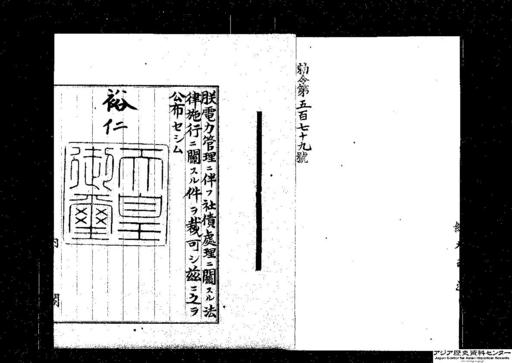 勅令第五百七十九號
朕電力管理ニ伴フ社債處理ニ關スル法
律施行ニ關スル件ヲ裁可シ玆ニ之ヲ
公布セシム
裕仁
天皇
御璽
内
閣
アジア歴史資料センター
Japan Center for Asian Historical Records